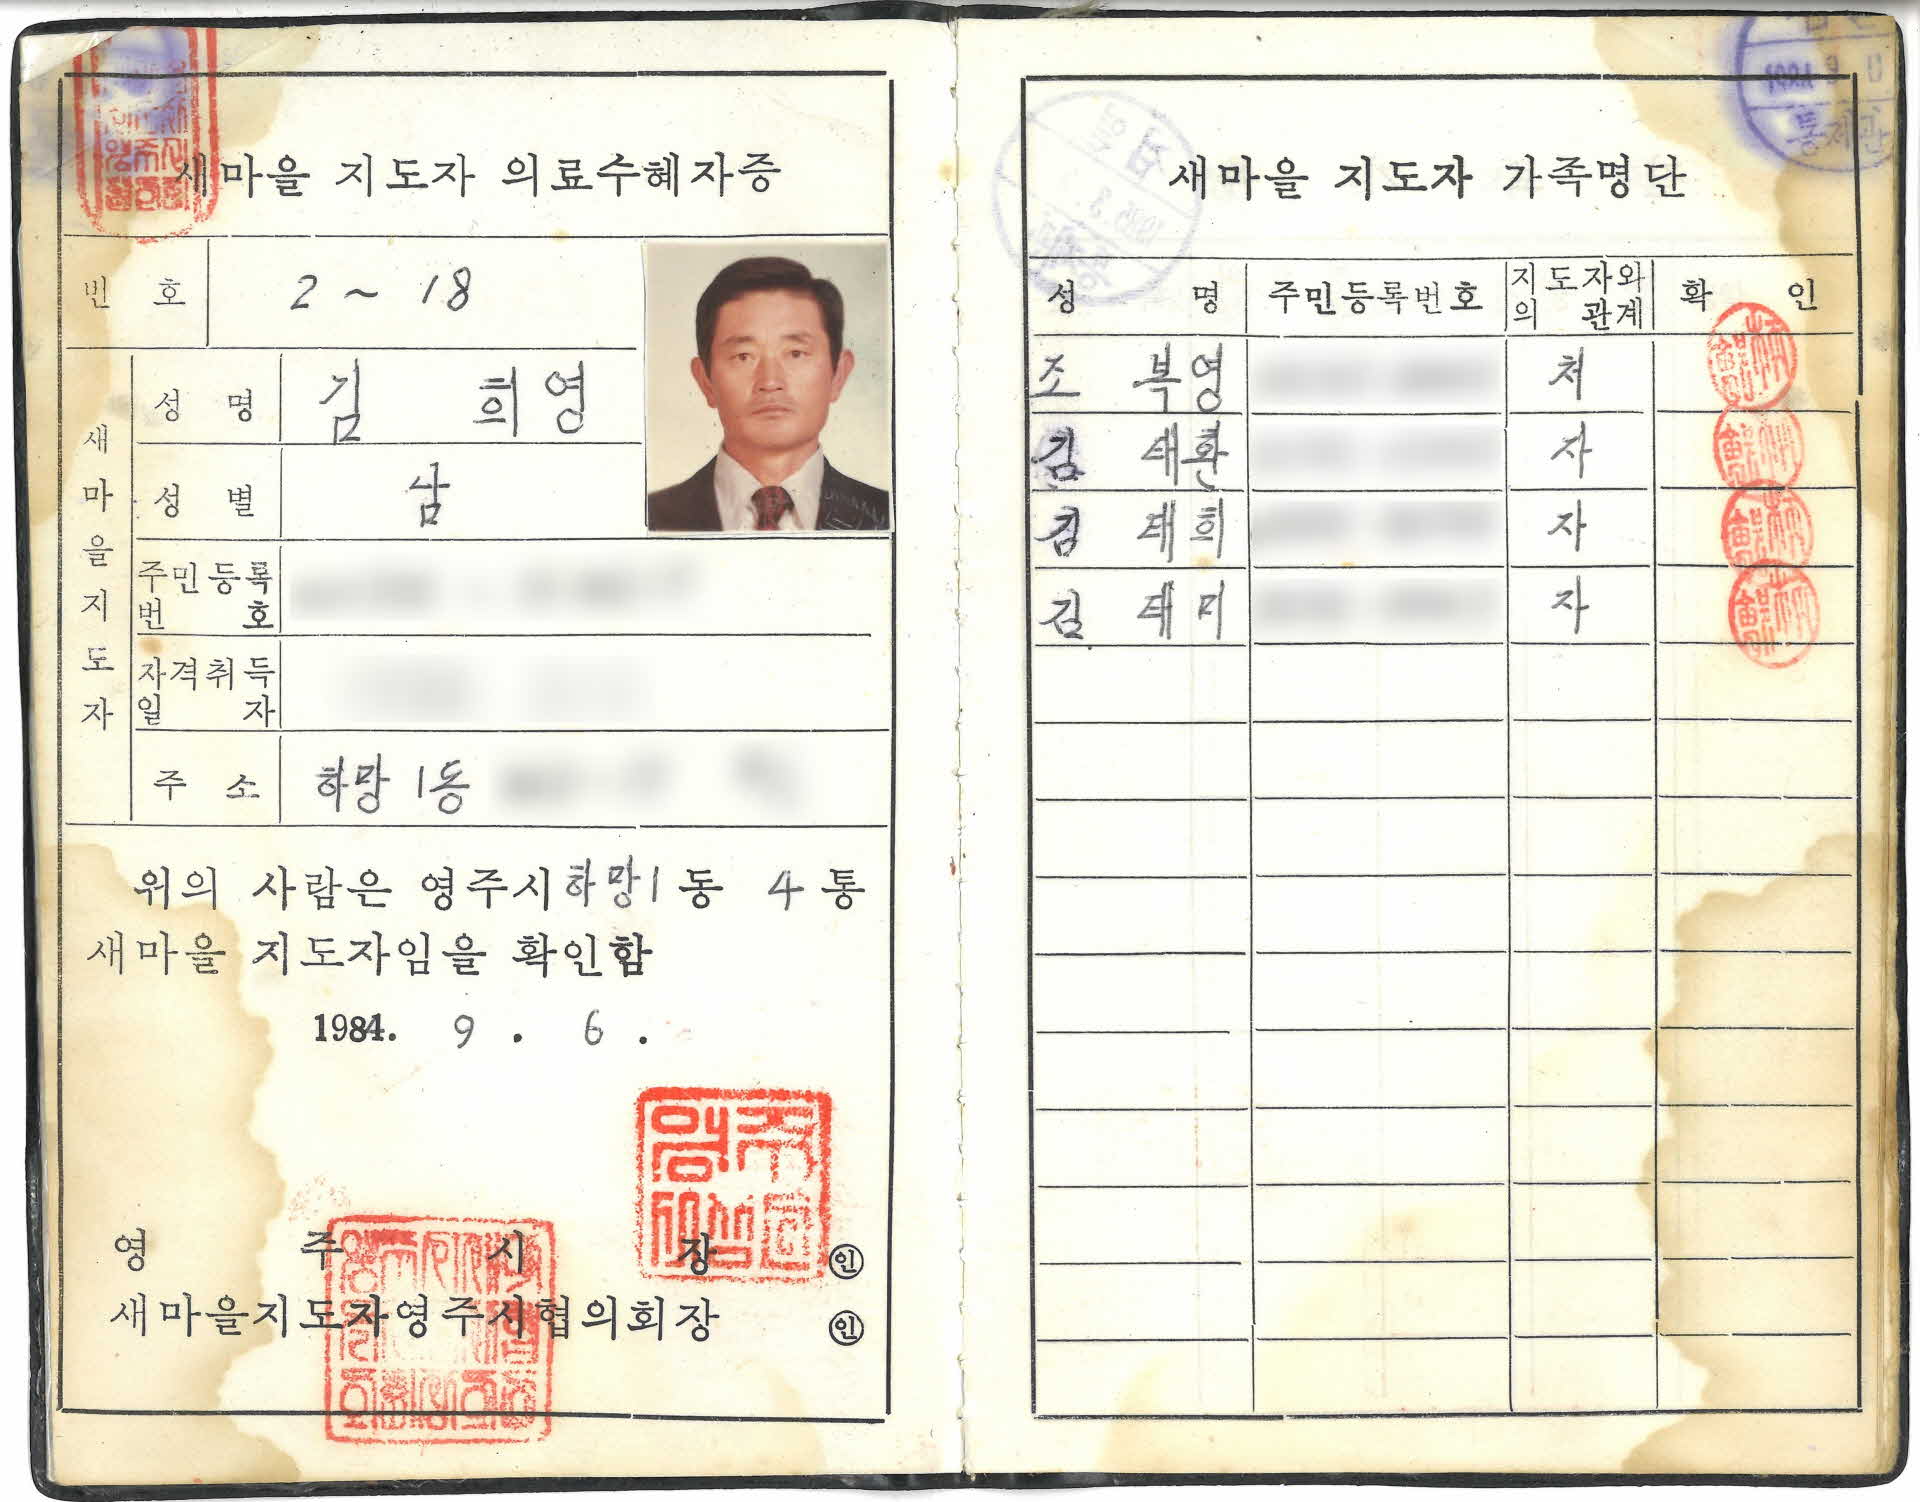 새마을 지도자 의료수혜자증
번 호 2 ~ 18
새마을지도자
성 명 김 희영
성 별 남
주민등록번호
자격취득일자
주 소 하망 1동
위의 사람은 영주시 하망1 동 4 통
새마을 지도자임을 확인함
1984. 9 . 6 .
영 주 시 장 ㊞
새마을지도자영주시협의회장 ㊞
새마을 지도자 가족명단
성 명 주민등록번호 지도자와의 관계 확 인
조 복영 처
김 태환 자
김 태희 자
김 태미 자